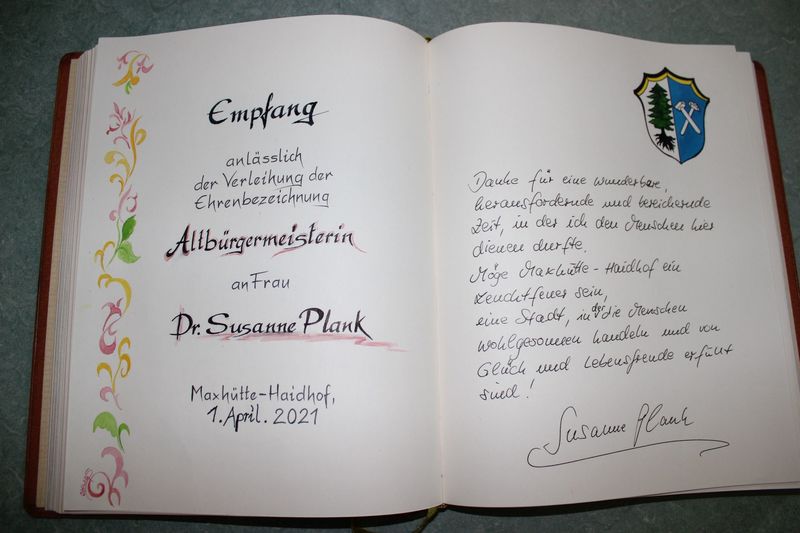 Empfang
anlässlich
der Verleihung der
Ehrenbezeichnung
Altbürgermeisterin
an Frau
Dr. Susanne Plank
Maxhütte-Haidhof,
1. April. 2021
Danke für eine wunderbare,
herausfordernde und bereichernde
Zeit, in der ich den Menschen hier
dienen durfte.
Möge Maxhütte-Haidhof ein
Leuchtfeuer sein,
eine Stadt, in der die Menschen
wohlgesonnen handeln und von
Glück und Lebensfreude erfüllt
sind!
Susanne Plank